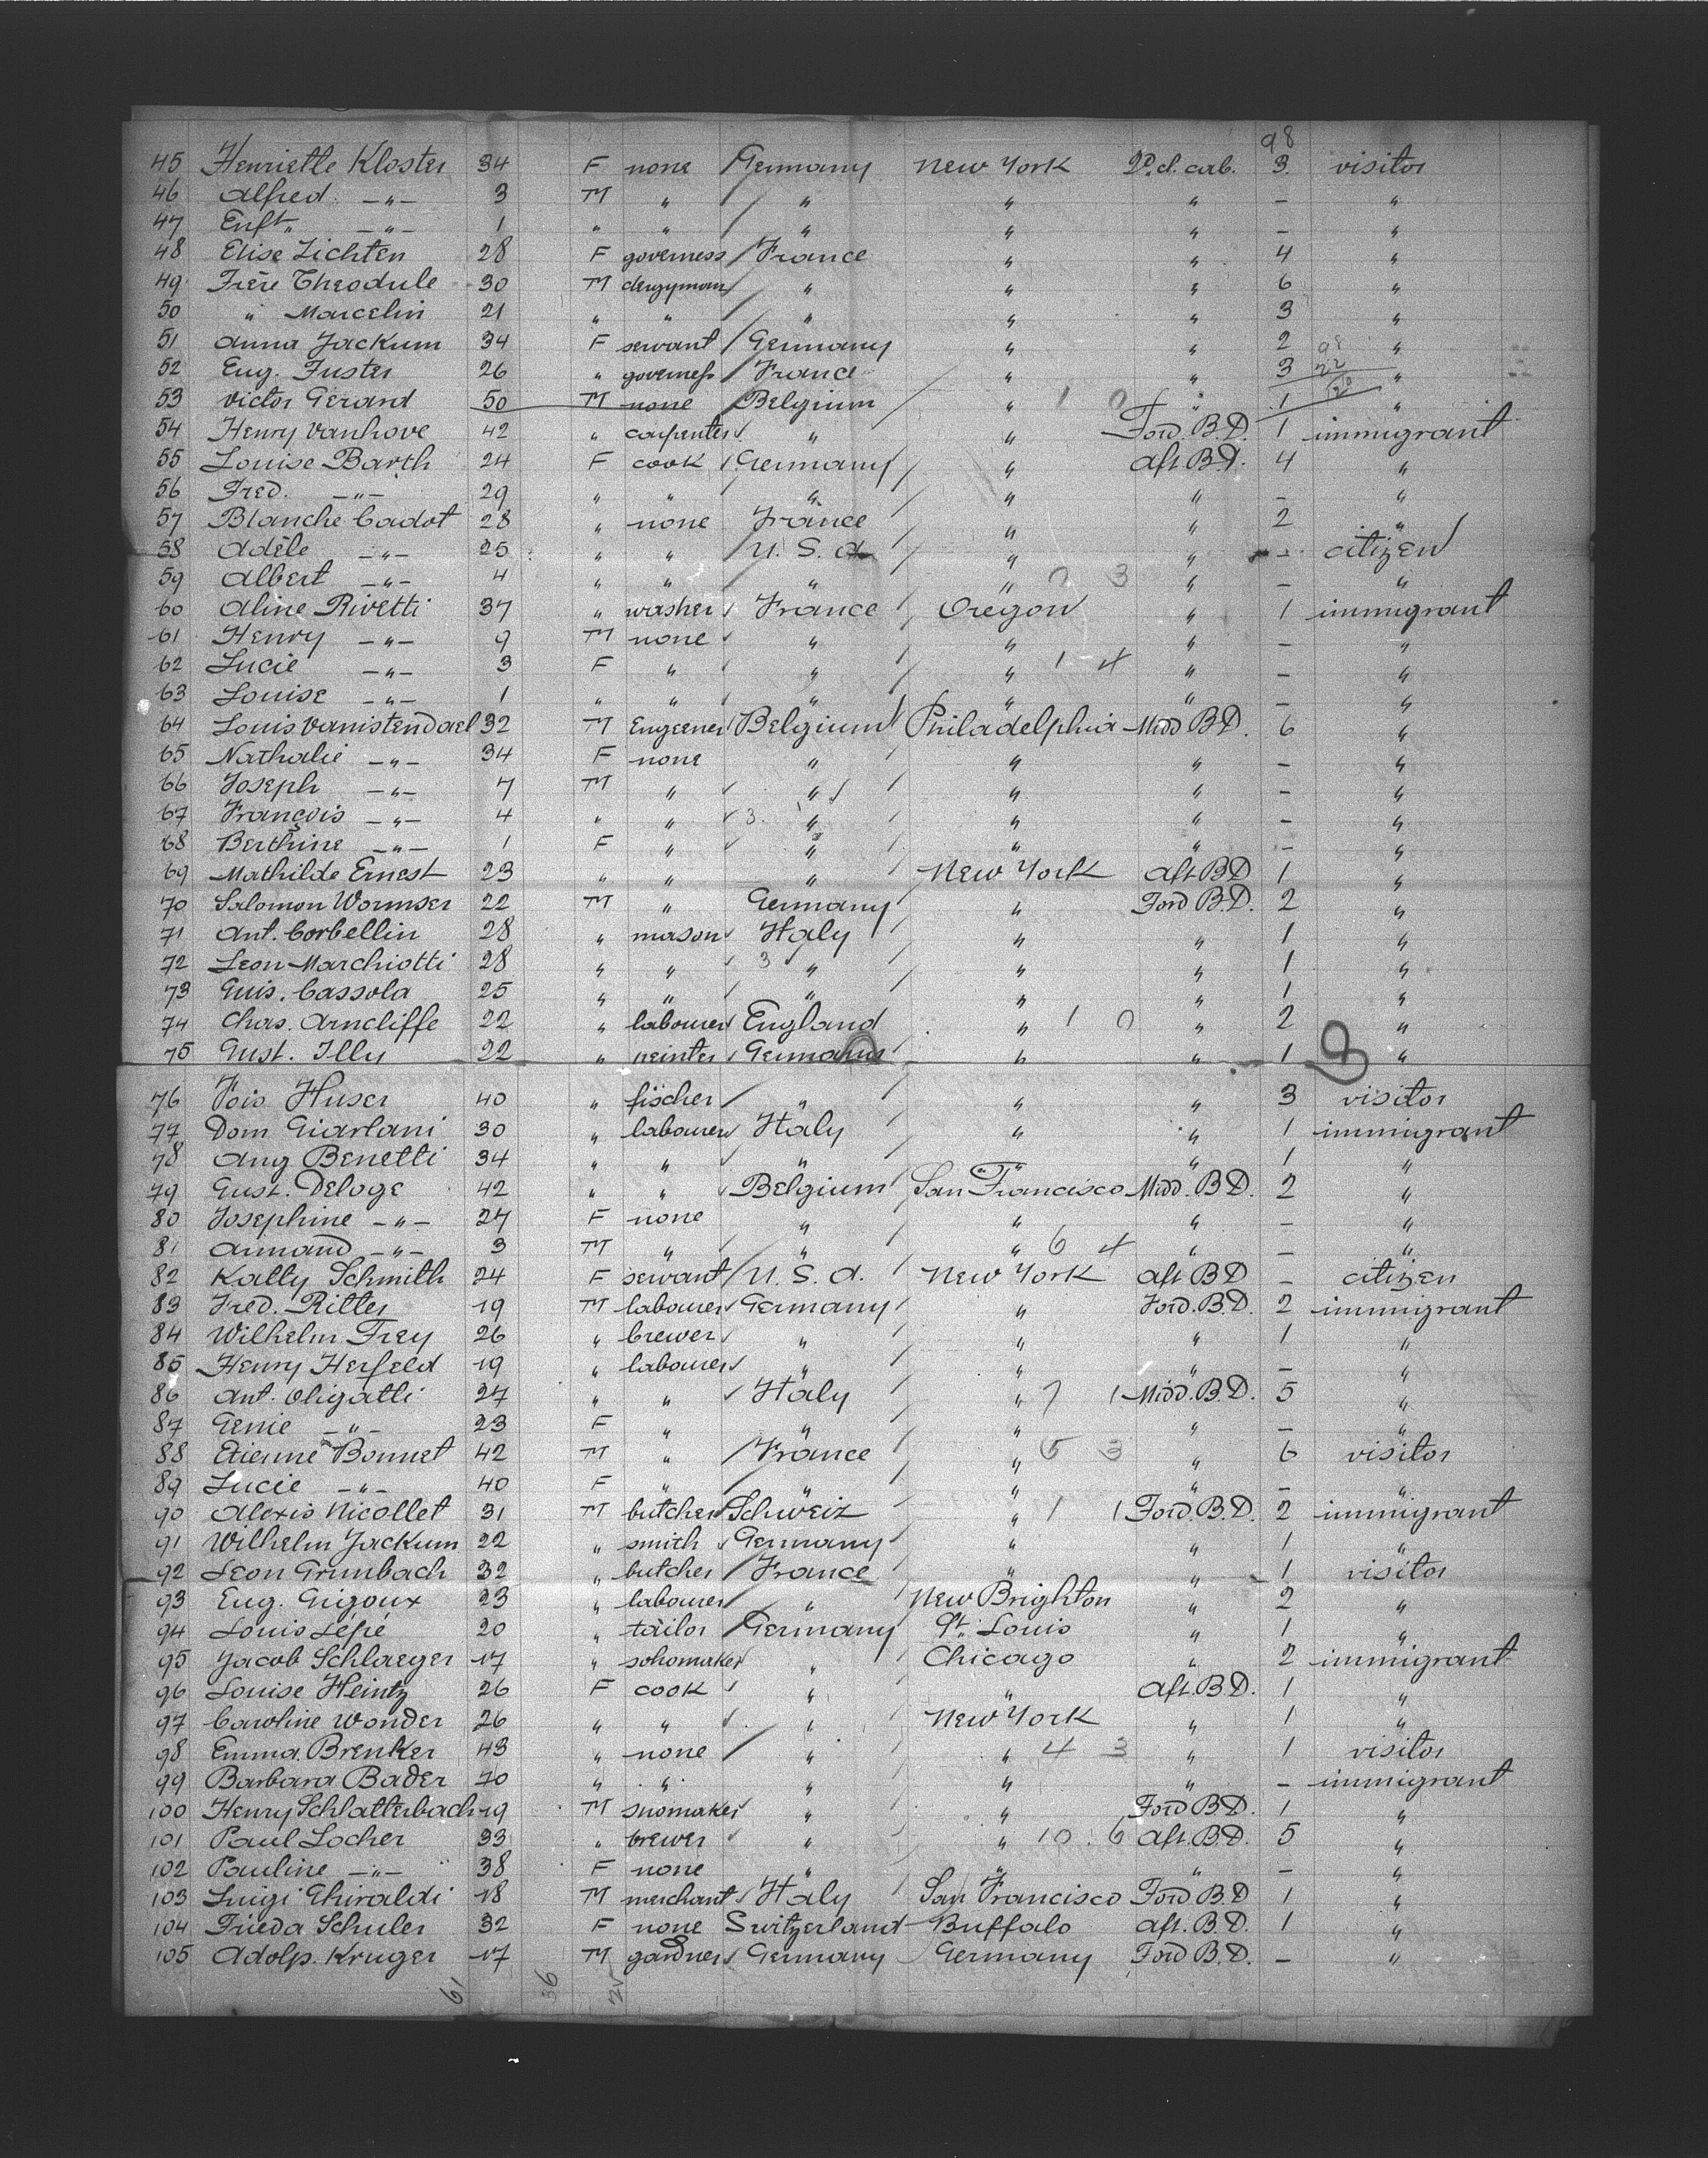 98
45 Henriette Kloster 34 F none Germany New York 2d. cl. cab. 3 visitor
46 Alfred —"— 3 M " " " " — "
47 —"— 1 " " " " " — "
48 Elise Lichten 28 F governess France " " 4 "
49 Frère Theodule 30 M clergyman " " " 6 "
50 " Marcelin 21 " " " " " 3 "
51 Anna Jackum 34 F servant Germany " " 2 98 "
52 Eug. Fuster 26 " governess France " " 3 22 "
53 Victor Gérard 50 M none Belgium " 1 0 " 1 "
54 Henry Vanhove 42 " carpenter " " Ford. B.D. 1 immigrant
55 Louise Barth 24 F cook Germany " Aft B.D. 4 "
56 Fred. —"— 29 " " " " " — "
57 Blanche Cadot 28 " none France " " 2 "
58 Adèle —"— 25 " " U. S. A " " — citizen
59 Albert —"— 4 " " " " 3 " — "
60 Aline Rivetti 37 " washer France Oregon " 1 immigrant
61 Henry —"— 9 M none " " " — "
62 Lucie —"— 3 F " " " 1 4 " — "
63 Louise —"— 1 " " " " " — "
64 Louis Vanistendael 32 M Engeener Belgium Philadelphia Midd B.D. 6 "
65 Nathalie —"— 34 F none " " " — "
66 Joseph —"— 7 M " " " " — "
67 François —"— 4 " " 3 " " " — "
68 Berthine —"— 1 F " " " " — "
69 Mathilde Ernest 23 " " " New York Aft B.D 1 "
70 Salomon Wormser 22 M " Germany " Ford B.D. 2 "
71 Ant. Corbellin 28 " mason Italy " " 1 "
72 Leon Marchiotti 28 " " 3 " " " 1 "
73 Guis. Cassola 25 " " " " " 1 "
74 Chas. Arncliffe 22 " labourer England " 1 0 " 2 "
75 Gust. Illy 22 " peinter Germany " " 1 "
76 Huser 40 " fischer " " " 3 visitor
77 Dom Giarlani 30 " labourer Italy " " 1 immigrant
78 Aug Benetti 34 " " " " " 1 "
79 Gust. Deloge 42 " " Belgium San Francisco Midd. B.D. 2 "
80 Josephine —"— 27 F none " " " — "
81 Armand —"— 3 M " " " 6 4 " — "
82 Katty Schmith 24 F servant U. S. A. New York Aft B.D — citizen
83 Fred. Ritter 19 M labourer Germany " Ford. B.D. 2 immigrant
84 Wilhelm Frey 26 " brewer " " " 1 "
85 Henry Herfeld 19 " labourer " " " — "
86 Ant. Oligatti 27 " " Italy " 7 1 Midd. B.D. 5 "
87 Genie —"— 23 F " " " " — "
88 Etienne Bonnet 42 M " France " 5 3 " 6 visitor
89 Lucie —"— 40 F " " " " — "
90 Alexis Nicollet 31 M butcher Schweiz " 1 1 Ford. B.D. 2 immigrant
91 Wilhelm Jackum 22 " smith Germany " " 1 "
92 Leon Grunbach 32 " butcher France " " 1 visitor
93 Eug. Gigoux 23 " labourer " New Brighton " 2 "
94 Louis Lépié 20 " tailor Germany St. Louis " 1 "
95 Jacob Schlaeger 17 " sohomaker " Chicago " 2 immigrant
96 Louise Heintz 26 F cook " " Aft. B.D. 1 "
97 Caroline Wonder 26 " " " New York " 1 "
98 Emma Brenker 43 " none " " 4 3 " 1 visitor
99 Barbara Bader 70 " " " " " — immigrant
100 Henry Schlatterbach 19 M shomaker " " Ford B.D. 1 "
101 Paul Locher 33 " brewer " " 10 6 Aft. B.D. 5 "
102 Pauline —"— 38 F none " " " — "
103 Luigi Ghiraldi 18 M merchant Italy San Francisco Ford B.D 1 "
104 Frieda Schuler 32 F none Switzerland Buffalo Aft. B.D. 1 "
105 Adolp. Kruger 17 M gardner Germany Germany Ford B.D. — "
61 36